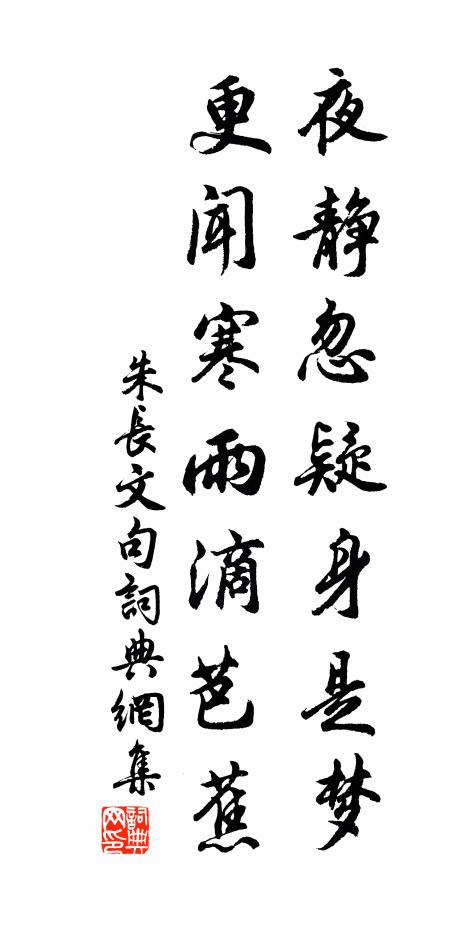 夜静忽疑身是梦
更闻寒雨滴芭蕉
朱長文句詞典網集
詞典网印